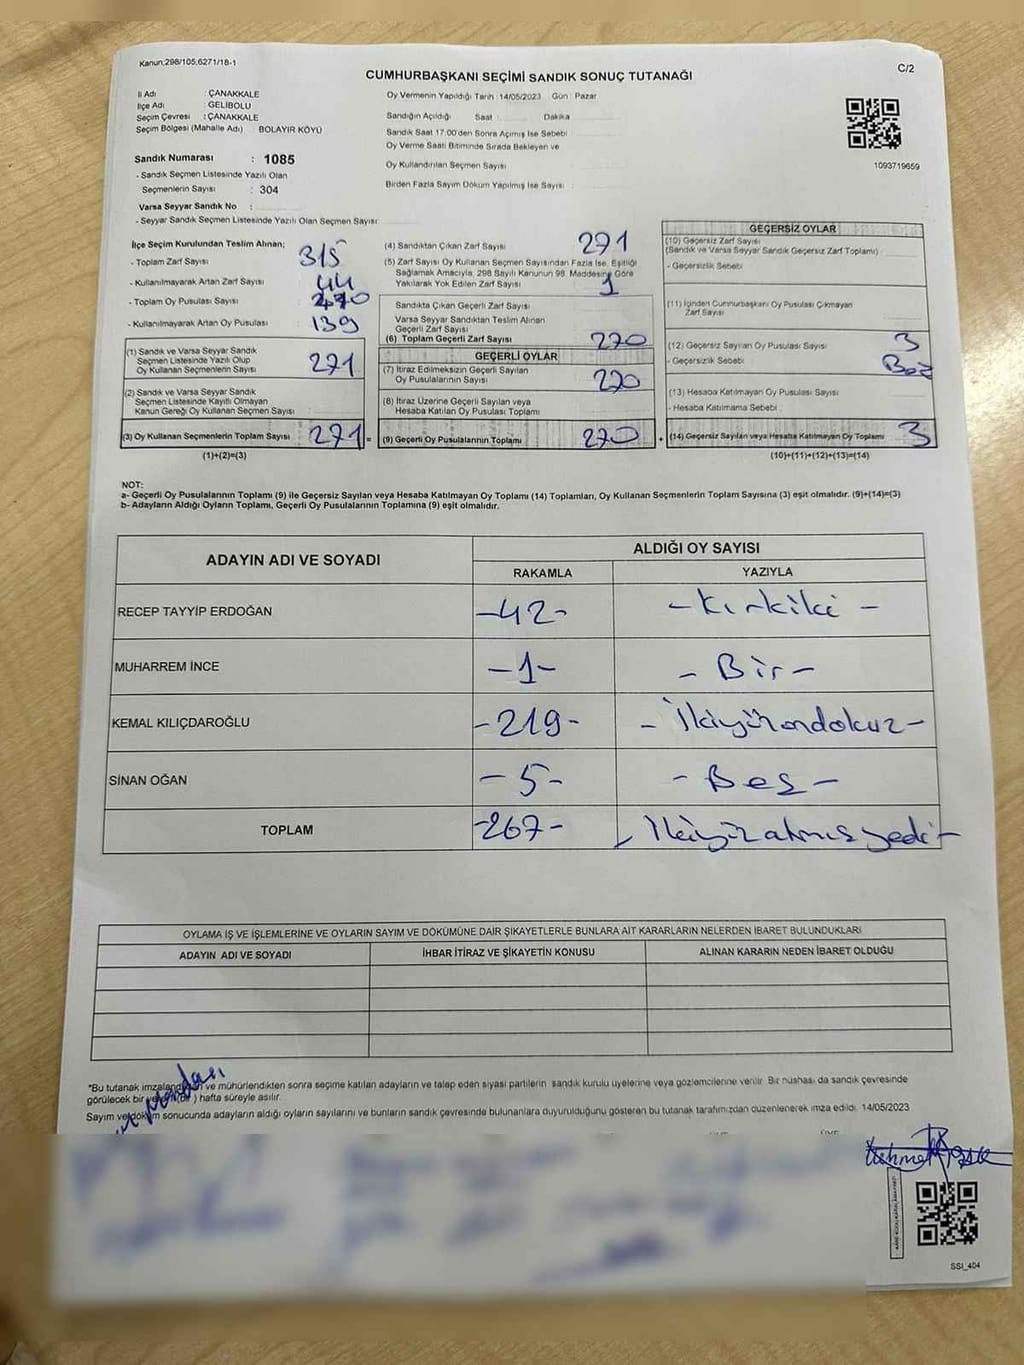 Kanun;298/105,6271/18-1
CUMHURBAŞKANI SEÇİMİ SANDIK SONUÇ TUTANAĞI
C/2
İl Adı : ÇANAKKALE
İlçe Adı : GELİBOLU
Seçim Çevresi : ÇANAKKALE
Seçim Bölgesi (Mahalle Adı) : BOLAYIR KÖYÜ
Sandık Numarası : 1085
- Sandık Seçmen Listesinde Yazılı Olan
Seçmenlerin Sayısı : 304
Varsa Seyyar Sandık No :
- Seyyar Sandık Seçmen Listesinde Yazılı Olan Seçmen Sayısı:
Oy Vermenin Yapıldığı Tarih :14/05/2023 Gün : Pazar
Sandığın Açıldığı Saat Dakika
Sandık Saat 17:00'den Sonra Açımış İse Sebebi :
Oy Verme Saati Bitiminde Sırada Bekleyen ve
Oy Kullandırılan Seçmen Sayısı :
Birden Fazla Sayım Döküm Yapılmış İse Sayısı :
1093719659
İlçe Seçim Kurulundan Teslim Alınan;
- Toplam Zarf Sayısı : 315
- Kullanılmayarak Artan Zarf Sayısı : 44
- Toplam Oy Pusulası Sayısı :
- Kullanılmayarak Artan Oy Pusulası : 139
(1) Sandık ve Varsa Seyyar Sandık
Seçmen Listesinde Yazılı Olup
Oy Kullanan Seçmenlerin Sayısı : 271
(2) Sandık ve Varsa Seyyar Sandık
Seçmen Listesinde Kayıtlı Olmayan
Kanun Gereği Oy Kullanan Seçmen Sayısı :
(3) Oy Kullanan Seçmenlerin Toplam Sayısı : 271 =
(1)+(2)=(3)
(4) Sandıktan Çıkan Zarf Sayısı : 271
(5) Zarf Sayısı Oy Kullanan Seçmen Sayısından Fazla İse, Eşitliği
Sağlamak Amacıyla, 298 Sayılı Kanunun 98. Maddesine Göre
Yakılarak Yok Edilen Zarf Sayısı : 1
Sandıkta Çıkan Geçerli Zarf Sayısı :
Varsa Seyyar Sandıktan Teslim Alınan
Geçerli Zarf Sayısı :
(6) Toplam Geçerli Zarf Sayısı : 270
GEÇERLİ OYLAR
(7) İtiraz Edilmeksizin Geçerli Sayılan
Oy Pusulalarının Sayısı : 270
(8) İtiraz Üzerine Geçerli Sayılan veya
Hesaba Katılan Oy Pusulası Toplamı :
(9) Geçerli Oy Pusulalarının Toplamı : 270 +
GEÇERSİZ OYLAR
(10) Geçersiz Zarf Sayısı
(Sandık ve Varsa Seyyar Sandık Geçersiz Zarf Toplamı) :
- Geçersizlik Sebebi :
(11) İçinden Cumhurbaşkanı Oy Pusulası Çıkmayan
Zarf Sayısı :
(12) Geçersiz Sayılan Oy Pusulası Sayısı : 3
- Geçersizlik Sebebi :
(13) Hesaba Katılmayan Oy Pusulası Sayısı :
- Hesaba Katılmama Sebebi :
(14) Geçersiz Sayılan veya Hesaba Katılmayan Oy Toplamı : 3
(10)+(11)+(12)+(13)=(14)
NOT:
a- Geçerli Oy Pusulalarının Toplamı (9) ile Geçersiz Sayılan veya Hesaba Katılmayan Oy Toplamı (14) Toplamları, Oy Kullanan Seçmenlerin Toplam Sayısına (3) eşit olmalıdır. (9)+(14)=(3)
b- Adayların Aldığı Oyların Toplamı, Geçerli Oy Pusulalarının Toplamına (9) eşit olmalıdır.
ADAYIN ADI VE SOYADI
ALDIĞI OY SAYISI
RAKAMLA YAZIYLA
RECEP TAYYİP ERDOĞAN -42- -Kırkiki-
MUHARREM İNCE -1- -Bir-
KEMAL KILIÇDAROĞLU -219- -İkiyüzondokuz-
SİNAN OĞAN -5- -Beş-
TOPLAM -267- -İkiyüzatmışyedi-
OYLAMA İŞ VE İŞLEMLERİNE VE OYLARIN SAYIM VE DÖKÜMÜNE DAİR ŞİKAYETLERLE BUNLARA AİT KARARLARIN NELERDEN İBARET BULUNDUKLARI
ADAYIN ADI VE SOYADI İHBAR İTİRAZ VE ŞİKAYETİN KONUSU ALINAN KARARIN NEDEN İBARET OLDUĞU
*Bu tutanak imzalandıktan ve mühürlendikten sonra seçime katılan adayların ve talep eden siyasi partilerin sandık kurulu üyelerine veya gözlemcilerine verilir. Bir nüshası da sandık çevresinde
görülecek bir yere (bir) hafta süreyle asılır.
Sayım ve döküm sonucunda adayların aldığı oyların sayılarını ve bunların sandık çevresinde bulunanlara duyurulduğunu gösteren bu tutanak tarafımızdan düzenlenerek imza edildi. 14/05/2023
SSI_404